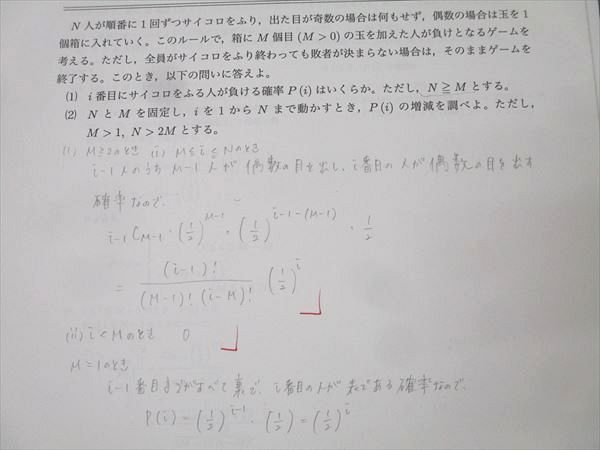 N人が順番に1回ずつサイコロをふり,出た目が奇数の場合は何もせず,偶数の場合は玉を1
個箱に入れていく。このルールで,箱にM個目 (M>0) の玉を加えた人が負けとなるゲームを
考える。ただし,全員がサイコロをふり終わっても敗者が決まらない場合は,そのままゲームを
終了する。このとき,以下の問いに答えよ。
(1) i番目にサイコロをふる人が負ける確率 P(i) はいくらか。ただし,N≧M とする。
(2) NとMを固定し,iを1からNまで動かすとき,P(i) の増減を調べよ。ただし,
M>1, N>2M とする。
(1) M≧2のとき (i) M≦i≦Nのとき
i-1人のうちM-1人が偶数の目を出し、i番目の人が偶数の目を出す
確率なので、
i-1CM-1・(1/2)^M-1・(1/2)^i-1-(M-1)・1/2
= (i-1)!/(M-1)!(i-M)! (1/2)^i
(ii) i<Mのとき 0
M=1のとき
i-1番目まですべて裏で、i番目の人が表である確率なので、
P(i)=(1/2)^i-1・(1/2)=(1/2)^i